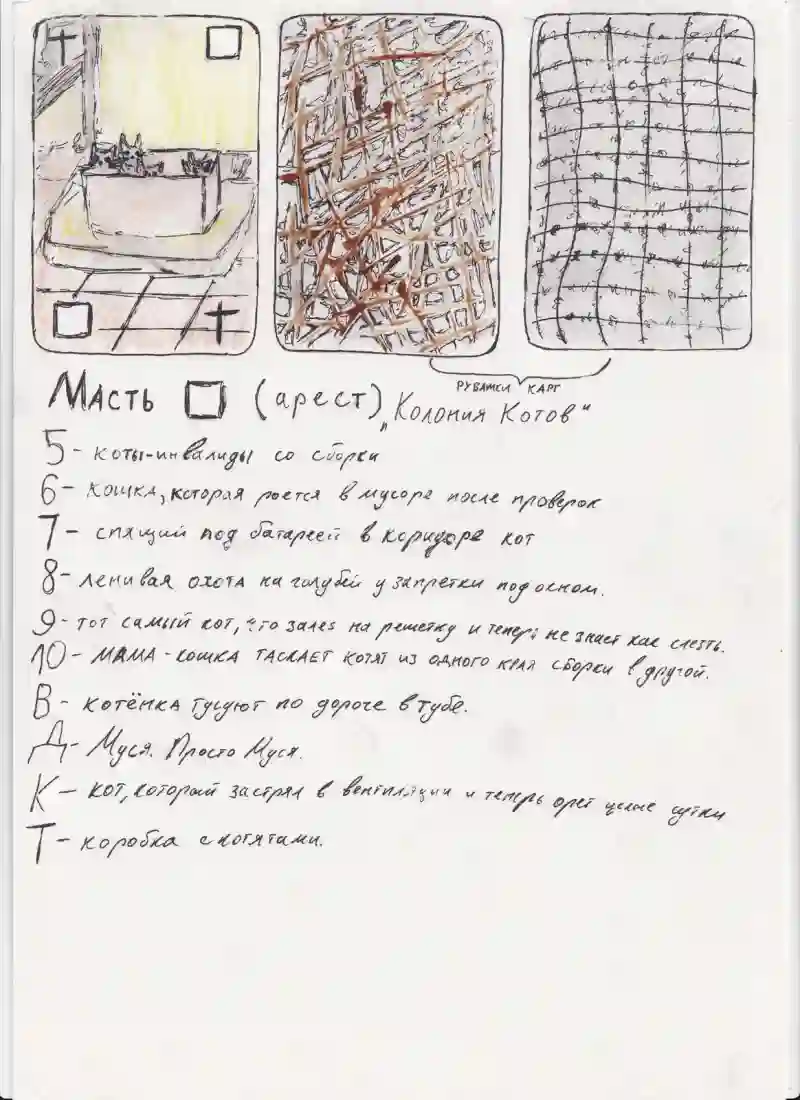 Т
Т
РУБАШКИ КАРТ
Масть □ (арест) „Колония Котов"
5 - коты-инвалиды со сборки
6 - кошка, которая роется в мусоре после проверок
7 - спящий под батареей в коридоре кот
8 - ленивая охота на голубей у запретки под окном.
9 - тот самый кот, что залез на решетку и теперь не знает как слезть.
10 - МАМА-кошка таскает котят из одного края сборки в другой.
В - котёнка гусуют по дороге в тубе.
Д - Муся. Просто Муся.
К - кот, который застрял в вентиляции и теперь орет целые сутки
Т - коробка с котятами.